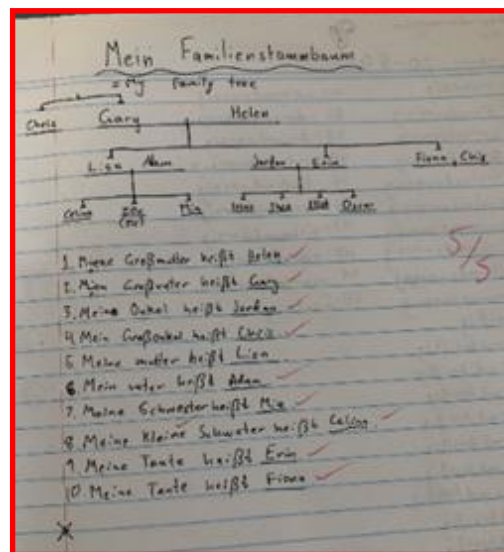 Mein Familienstammbaum
= My family tree
Chris Gary Helen
Lisa Adam Jordan Erin Fiona Chris
Celina Mia Oscar
1. Meine Großmutter heißt Helen
2. Mein Großvater heißt Gary
3. Meine Onkel heißt Jordan
4. Mein Großonkel heißt Chris
5. Meine mutter heißt Lisa
6. Mein vater heißt Adam
7. Meine Schwester heißt Mia
8. Meine kleine Schwester heißt Celina
9. Meine Tante heißt Erin
10. Meine Tante heißt Fiona
5/5